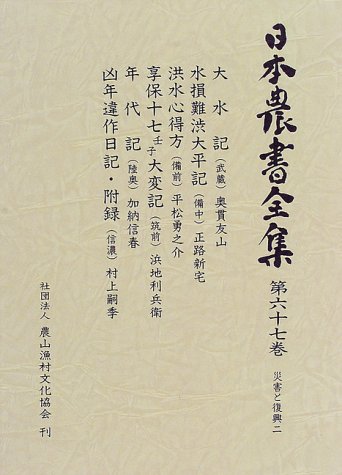 日本農書全集
第六十七巻
災害と復興二
大水記(武蔵)奥貫友山
水損難渋大平記(備中)正路新宅
洪水心得方(備前)平松勇之介
享保十七壬子大変記(筑前)浜地利兵衛
年代記(陸奥)加納信春
凶年違作日記・附録(信濃)村上嗣季
社団法人 農山漁村文化協会 刊